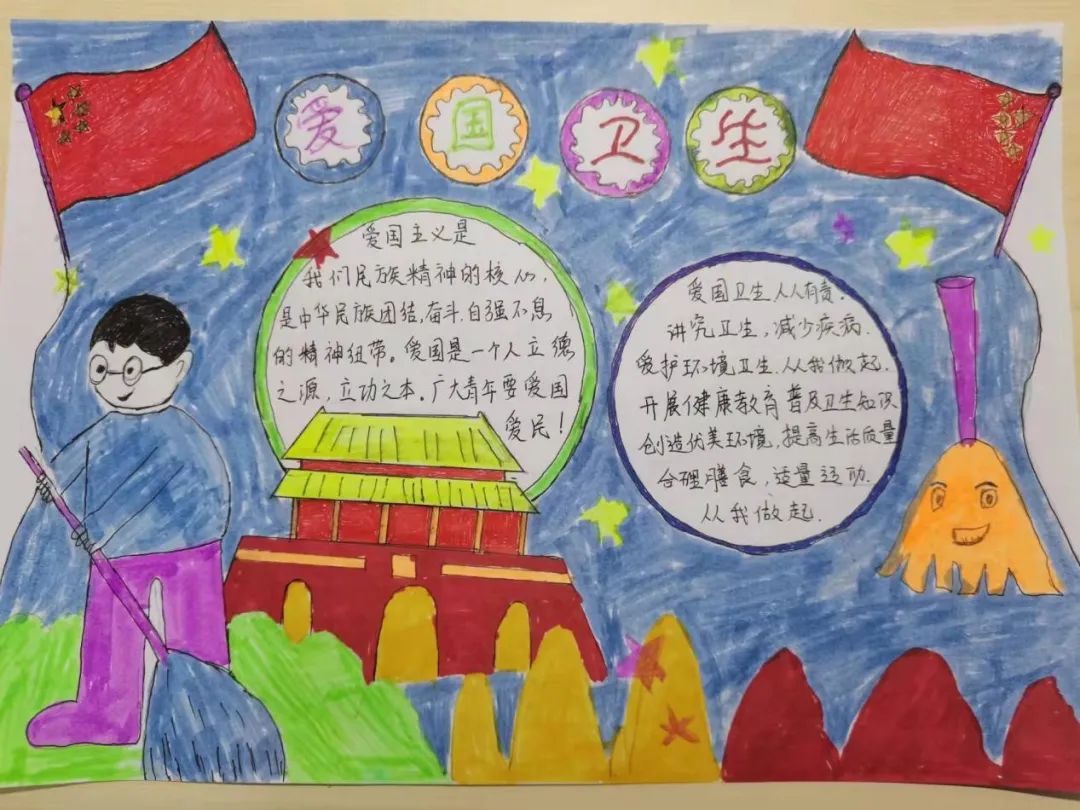 爱国卫生
爱国主义是
我们民族精神的核心,
是中华民族团结,奋斗,自强不息
的精神纽带。爱国是一个人立德
之源,立功之本。广大青年要爱国
爱民!
爱国卫生人人有责。
讲究卫生,减少疾病.
爱护环境卫生.从我做起.
开展健康教育普及卫生知识
创造优美环境,提高生活质量
合理膳食,适量运动.
从我做起.